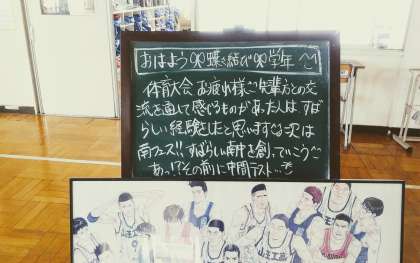 おはよう🎀蝶々結び🎀学年
体育大会お疲れ様ご先輩方との交
流を通して感じるものがあった人は、すば
らしい経験をしたと思いますぐる次は
南フェス!!すばらしい南中を創っていこう
あっ!?その前に中間テスト…
山王工高
9